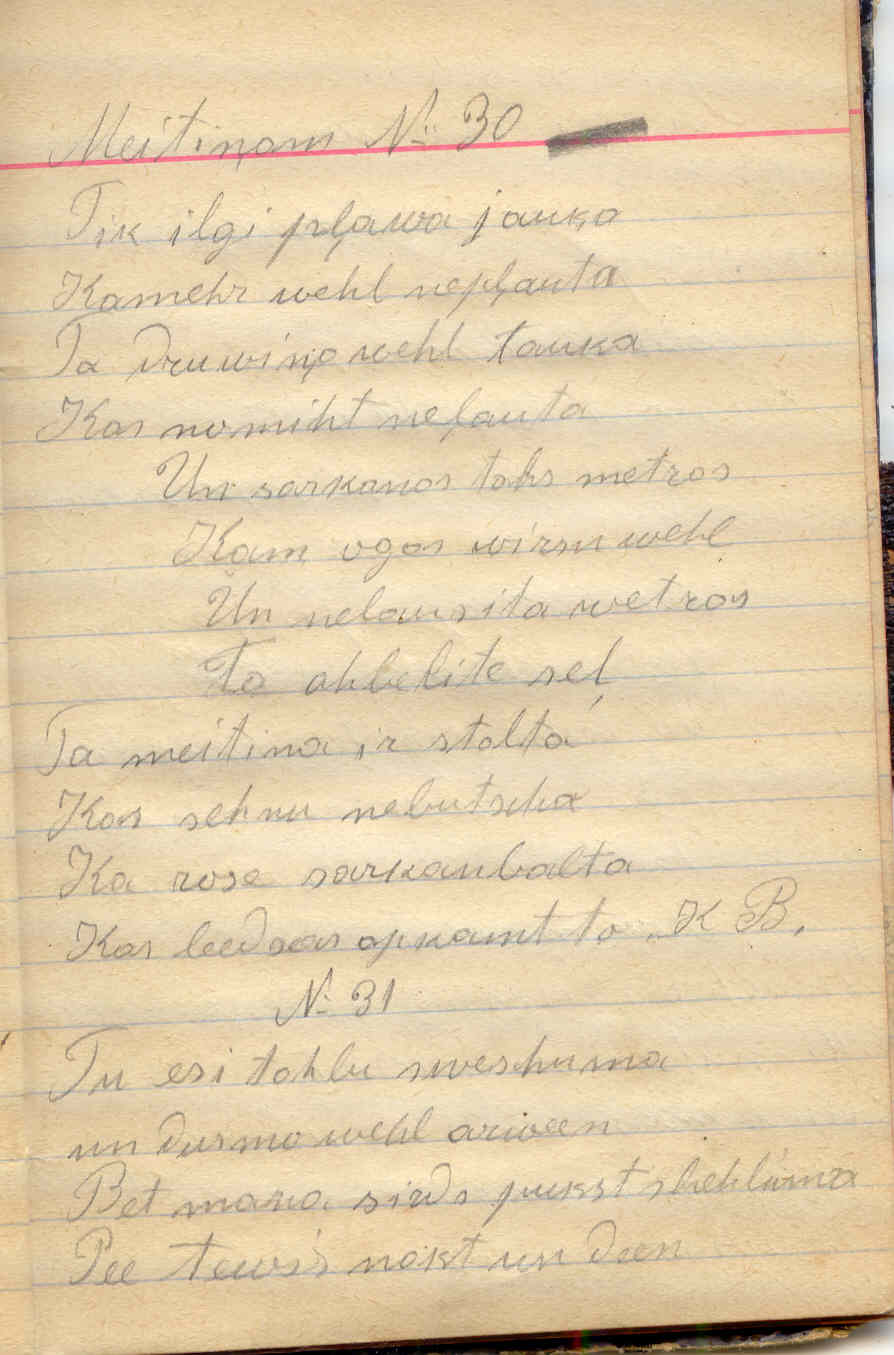 Meitiņam № 30
Tik ilgi pļawa jauka
Kamehr wehl nepļauta
Ta druwiņa wehl tauka
Kas nomiht neļauta
Un sarkanas tahs metras
Kam ogas wirsu wehl
Un nelausita wetras
To ahbelite seļ
Ta meitina ir stalta
Kas sehnu nebutscha
Ka rose sarkanbalta
Kas leedsas apkamt to K B.
№ 31
Tu esi tahlu sweschuma
un dusmo wehl arween
Bet mana sirds pukst shehluma
Pee tewis nakt un deen